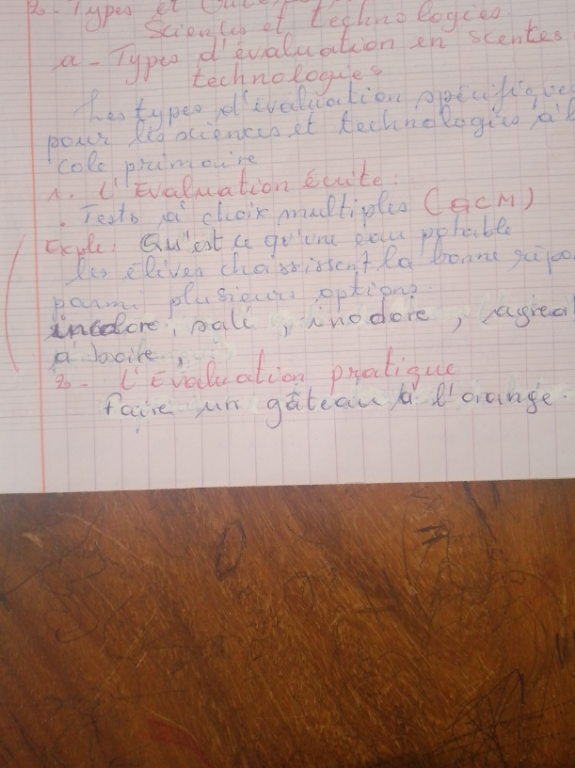 2- Types et
Sciences et technologies
a - Types d'évaluation en scentes
technologies
Les types d'évaluation spécifiques
pour les sciences et technologies à l
cole primaire
1. L'Evaluation écrite:
. Tests à choix multiples (QCM)
Exple: Qu'est ce qu'une eau potable
les élèves choisissent la bonne répo
parmi plusieurs options
incolore, salé, inodore, agréa
à boire,
2- L'Evaluation pratique
Faire un gâteau à l'orange.